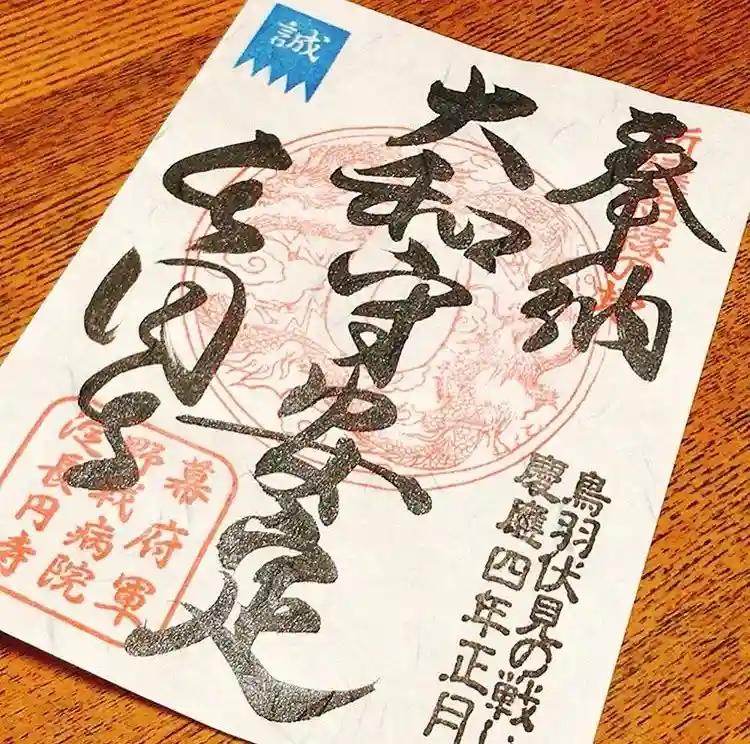 奉納
鳥羽伏見の戦い
慶應四年正月
大和守安定
長円寺
誠
幕府軍
野戦病院
淀長円寺